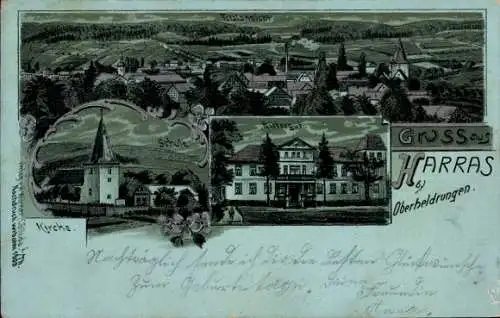 Totalansicht
Schule
Rittergut
Kirche.
Gruss aus
Harras
b/
Oberheldrungen.
Nachträglich sende ich Dir die besten Glückwünsche
zum Geburtstage. Deine
Freundin
Anna.